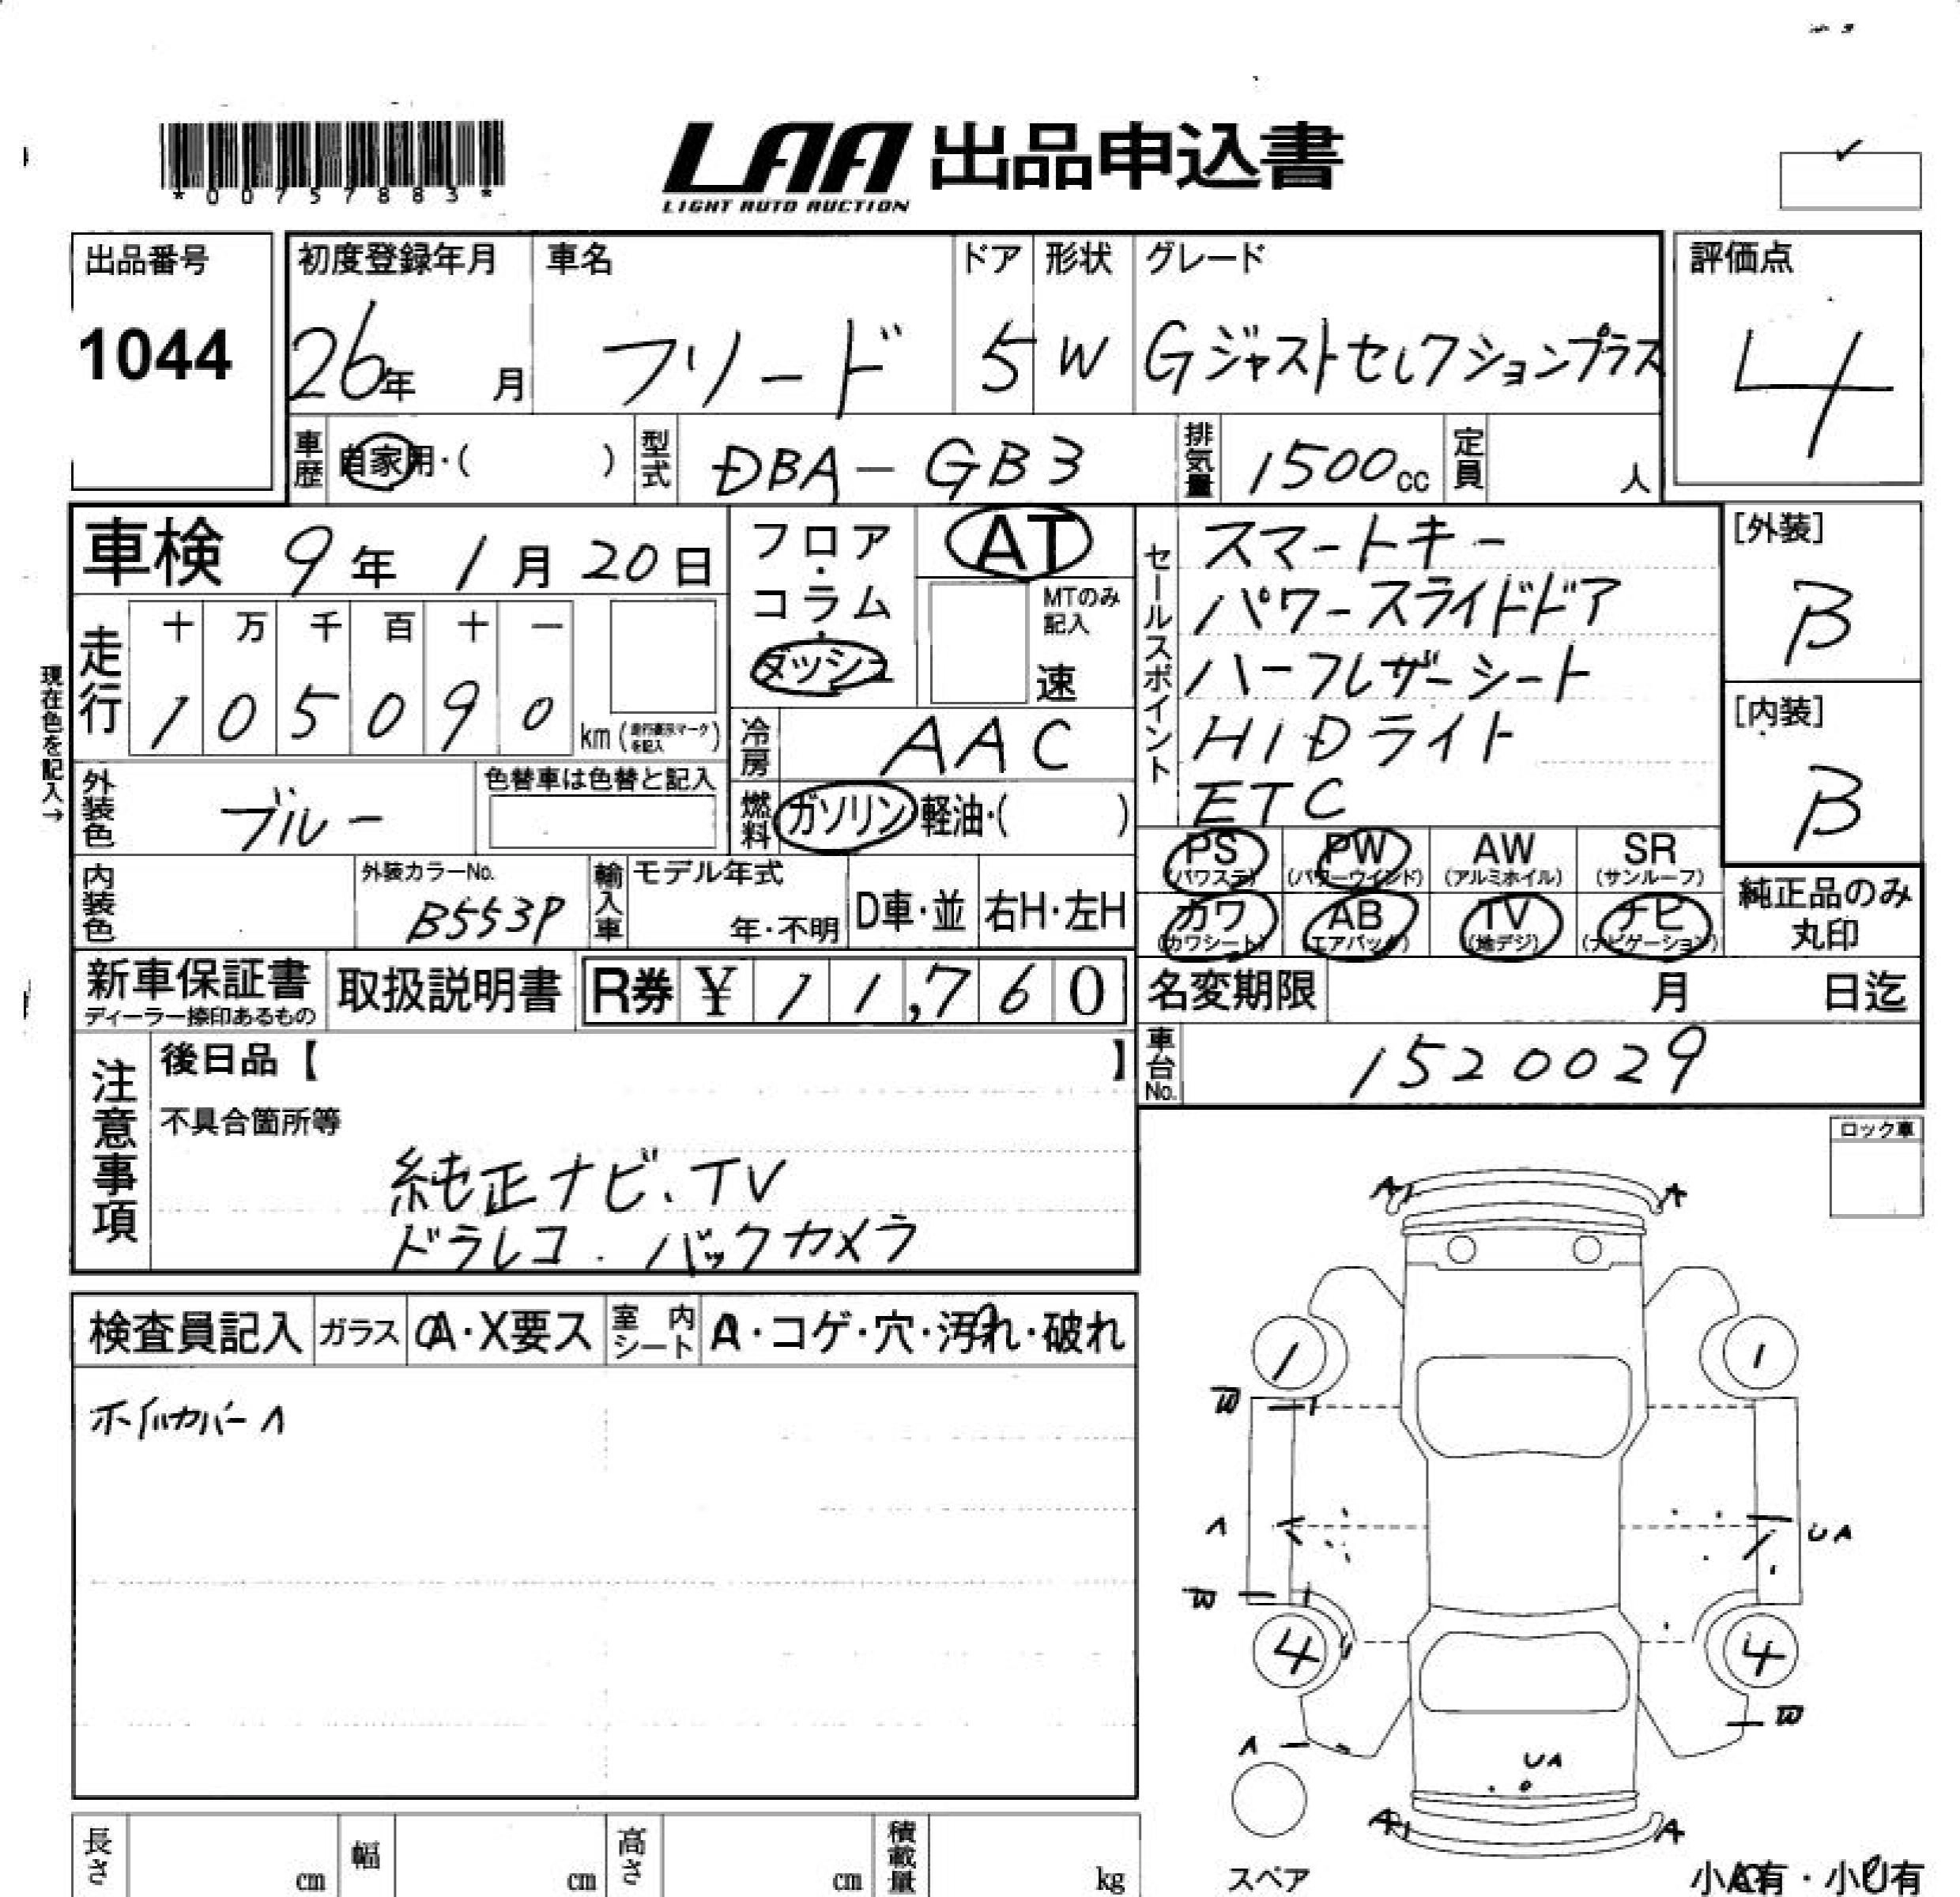 *00757883*
LAA 出品申込書
LIGHT AUTO AUCTION
出品番号
1044
初度登録年月
26年 月
車名
フリード
ドア
5
形状
W
グレード
Gジャストセレクションプラス
評価点
4
車歴 自家用・( )
型式 DBA-GB3
排気量 1500cc
定員 人
車検 9年 1月 20日
フロア・コラム・ダッシュ
AT
MTのみ記入
速
セールスポイント
スマートキー
パワースライドドア
ハーフレザーシート
HIDライト
ETC
[外装]
B
[内装]
B
現在色を記入→
走行
十 万 千 百 十 一
1 0 5 0 9 0 km
冷房 AAC
外装色 ブルー
色替車は色替と記入
燃料 ガソリン・軽油・( )
PS (パワステ) PW (パワーウインド) AW (アルミホイル) SR (サンルーフ)
カワ (カワシート) AB (エアバック) TV (地デジ) ナビ (ナビゲーション)
純正品のみ丸印
内装色
外装カラーNo.
B553P
輸入車
モデル年式
年・不明
D車・並
右H・左H
新車保証書
ディーラー捺印あるもの
取扱説明書
R券 ¥ 11,760
名変期限 月 日迄
車台No. 1520029
注意事項
後日品【 】
不具合箇所等
純正ナビ、TV
ドラレコ. バックカメラ
ロック車
検査員記入
ガラス A・X要ス
室内シート A・コゲ・穴・汚れ・破れ
ホイルカバーA
A A
1 1
W
A UA
W
4 4
W
A
UA
A A
スペア
小A有・小U有
長さ cm
幅 cm
高さ cm
積載量 kg